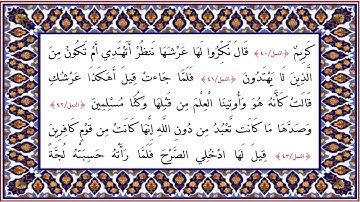 كَرِيمٌ ﴿النمل/٤٠﴾ قَالَ نَكِّرُوا لَهَا عَرْشَهَا نَنظُرْ أَتَهْتَدِي أَمْ تَكُونُ مِنَ
الَّذِينَ لَا يَهْتَدُونَ ﴿النمل/٤١﴾ فَلَمَّا جَاءَتْ قِيلَ أَهَكَذَا عَرْشُكِ
قَالَتْ كَأَنَّهُ هُوَ وَأُوتِينَا الْعِلْمَ مِن قَبْلِهَا وَكُنَّا مُسْلِمِينَ ﴿النمل/٤٢﴾
وَصَدَّهَا مَا كَانَت تَّعْبُدُ مِن دُونِ اللَّهِ إِنَّهَا كَانَتْ مِن قَوْمٍ كَافِرِينَ
﴿النمل/٤٣﴾ قِيلَ لَهَا ادْخُلِي الصَّرْحَ فَلَمَّا رَأَتْهُ حَسِبَتْهُ لُجَّةً